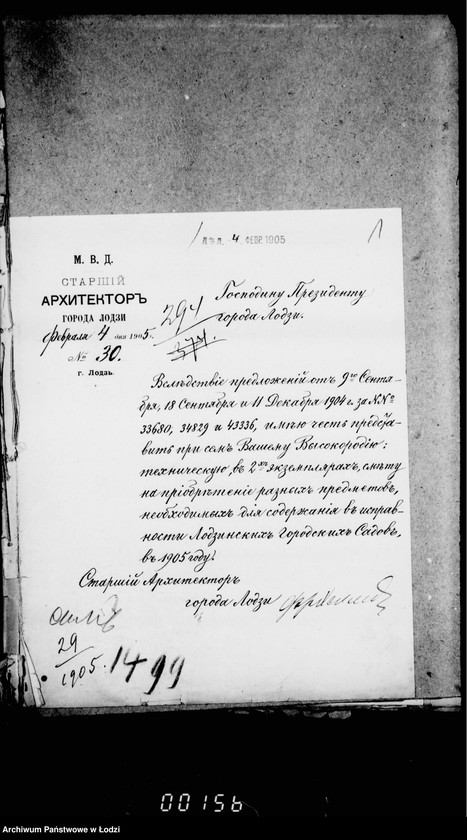 4 ФЕВР. 1905
1
М. В. Д.
СТАРШІЙ
АРХИТЕКТОРЪ
ГОРОДА ЛОДЗИ
Февраля 4 дня 1905 г.
№ 30.
г. Лодзь.
Господину Президенту
города Лодзи.
294
374.
Вслѣдствіе предложеній отъ 9го Сентя-
бря, 18 Сентября и 11 Декабря 1904 г. за №№
33680, 34829 и 43336, имѣю честь предста-
вить при семъ Вашему Высокородію:
техническую, въ 2хъ экземплярахъ, смѣту
на пріобрѣтеніе разныхъ предметовъ,
необходимыхъ для содержанія въ исправ-
ности Лодзинскихъ Городскихъ Садовъ,
въ 1905 году.
Старшій Архитекторъ
города Лодзи
29
1905.
1499
00156
Archiwum Państwowe w Łodzi